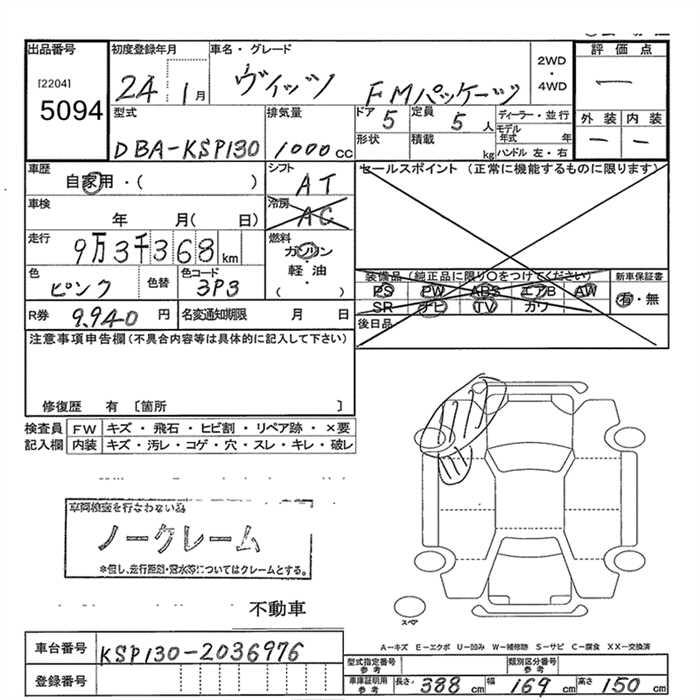 出品番号 初度登録年月 車名・グレード 2WD・4WD 評価点
[2204] 5094 24 1月 ヴィッツ FMパッケージ 一
型式 排気量 ドア 5 定員 5人 ディーラー・並行 外装 内装
DBA-KSP130 1000cc 形状 積載 kg モデル年式 年 ハンドル 左・右 一 一
車歴 自家用・( ) シフト AT セールスポイント (正常に機能するものに限ります)
車検 年 月( 日) 冷房 AC
走行 9万3千368km 燃料 ガソリン・軽油・( )
色 ピンク 色替 色コード 3P3 装備品(純正品に限り○をつけてください) 新車保証書
PS PW ABS エアB AW 有・無
SR ナビ TV カワ
R券 9,940円 名変通知期限 月 日 後日品
注意事項申告欄(不具合内容等は具体的に記入して下さい)
修復歴 有 〔箇所 〕
検査員記入欄 FW キズ・飛石・ヒビ割・リペア跡・×要
内装 キズ・汚レ・コゲ・穴・スレ・キレ・破レ
車両検査を行なわない為
ノークレーム
※但し、走行距離・冠水等についてはクレームとする。
不動車
スペア
A-キズ E-エクボ U-凹み W-補修跡 S-サビ C-腐食 XX-交換済
車台番号 KSP130-2036976 型式指定番号 参考 類別区分番号 参考
登録番号 車庫証明用 参考 長さ 388cm 幅 169cm 高さ 150cm